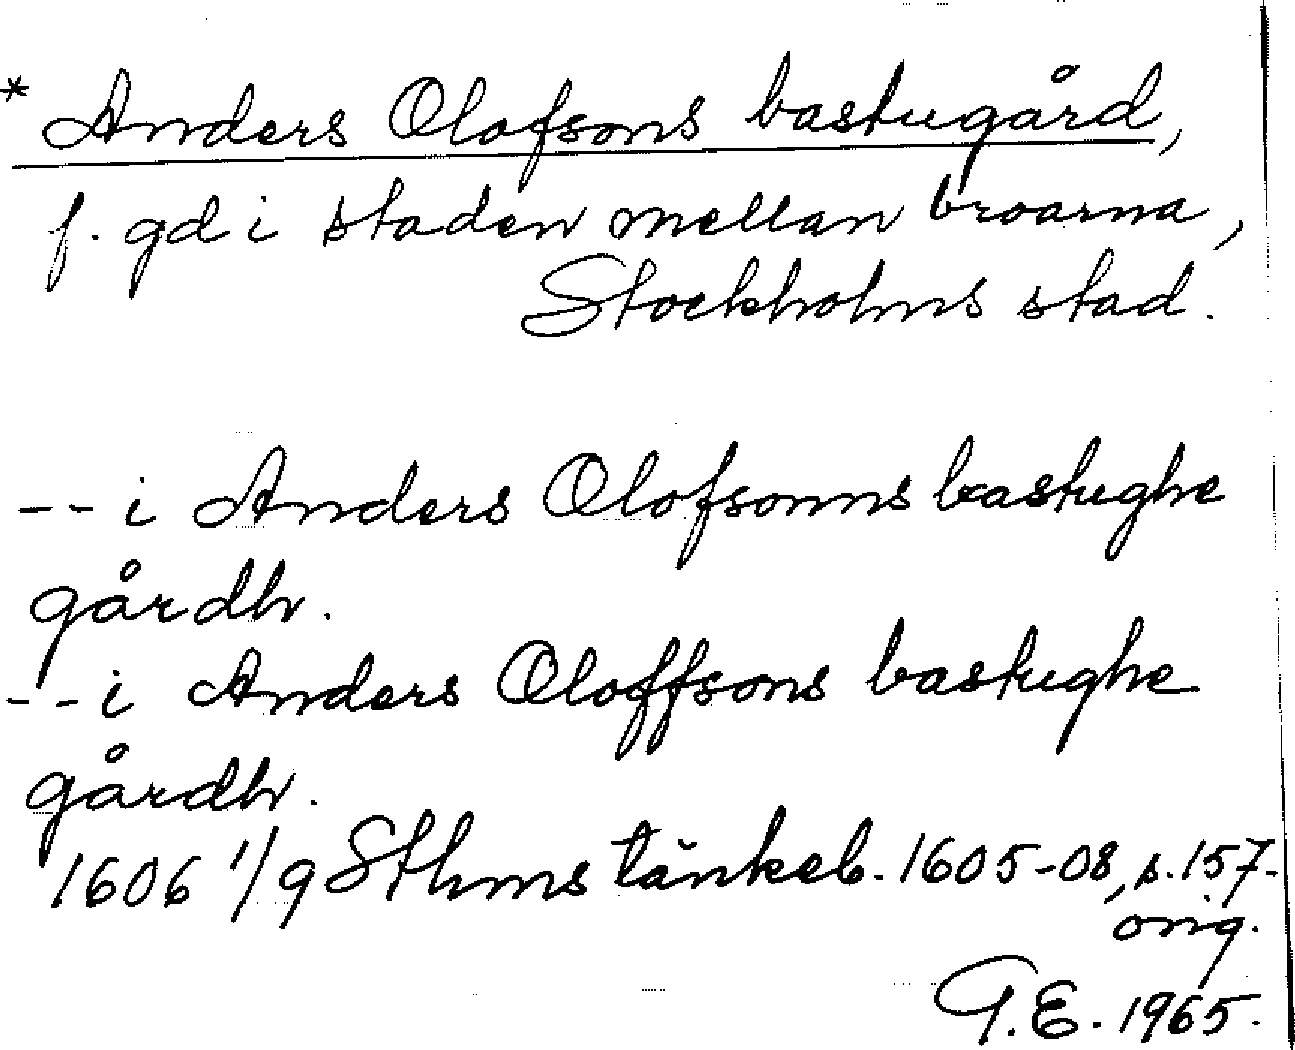 * Anders Olofsons bastugård,
f. gd i staden mellan broarna,
Stockholms stad.
-- i Anders Olofsonns bastughe
gårdh.
-- i Anders Oloffsons bastughe
gårdh.
1606 1/9 Sthms tänkeb. 1605-08, s. 157.
orig.
G.E. 1965.